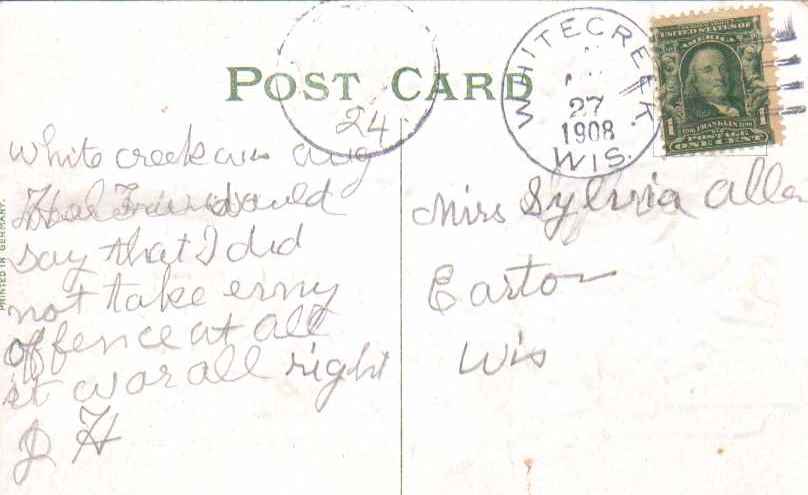 POST CARD
WHITECREEK.
27
1908
WIS.
UNITED STATES OF
AMERICA
1 FRANKLIN 1
POSTAGE
ONE CENT
24
White creek wis aug
would
say that I did
not take enny
offence at all
it was all right
J H
Miss Sylvia Allen
Easton
Wis
PRINTED IN GERMANY.